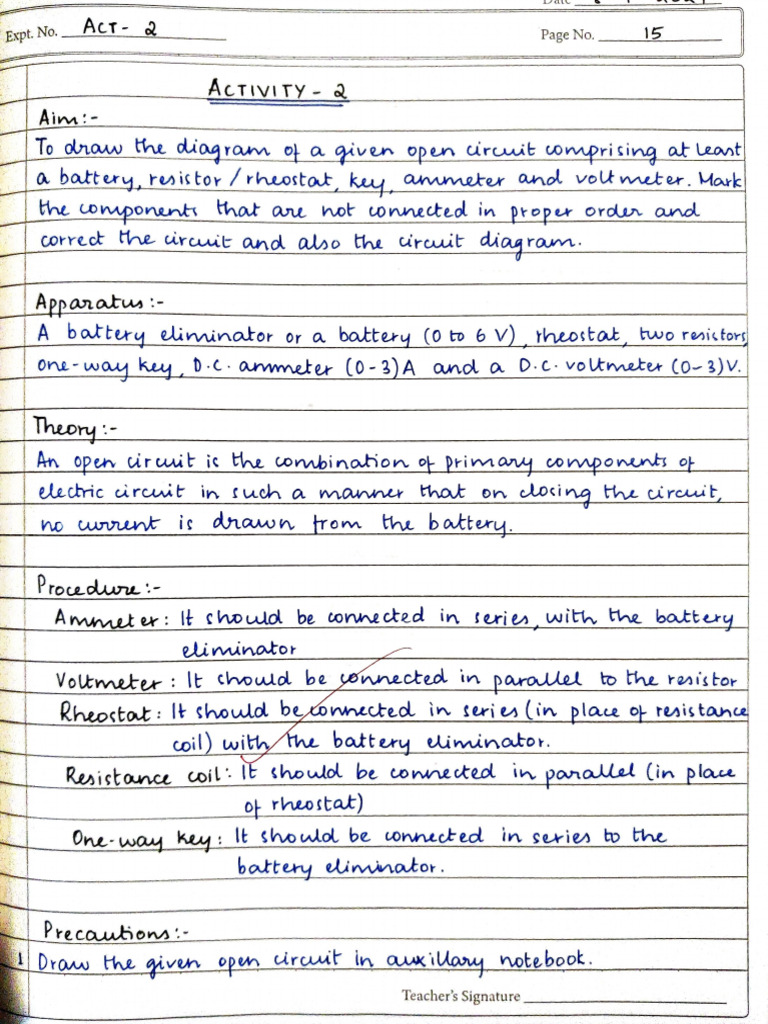 Date
Expt. No. ACT- 2
Page No. 15
ACTIVITY - 2
Aim:-
To draw the diagram of a given open circuit comprising at least
a battery, resistor / rheostat, key, ammeter and voltmeter. Mark
the components that are not connected in proper order and
correct the circuit and also the circuit diagram.
Apparatus:-
A battery eliminator or a battery (0 to 6 V), rheostat, two resistors,
one-way key, D.C. ammeter (0-3)A and a D.C. voltmeter (0-3)V.
Theory:-
An open circuit is the combination of primary components of
electric circuit in such a manner that on closing the circuit,
no current is drawn from the battery.
Procedure:-
Ammeter: It should be connected in series, with the battery
eliminator
Voltmeter: It should be connected in parallel to the resistor
Rheostat: It should be connected in series (in place of resistance
coil) with the battery eliminator.
Resistance coil: It should be connected in parallel (in place
of rheostat)
One-way key: It should be connected in series to the
battery eliminator.
Precautions:-
1 Draw the given open circuit in auxillary notebook.
Teacher's Signature